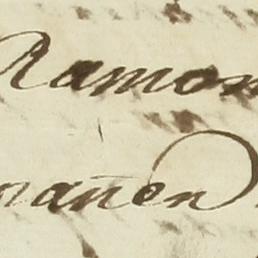 Ramon
nañen